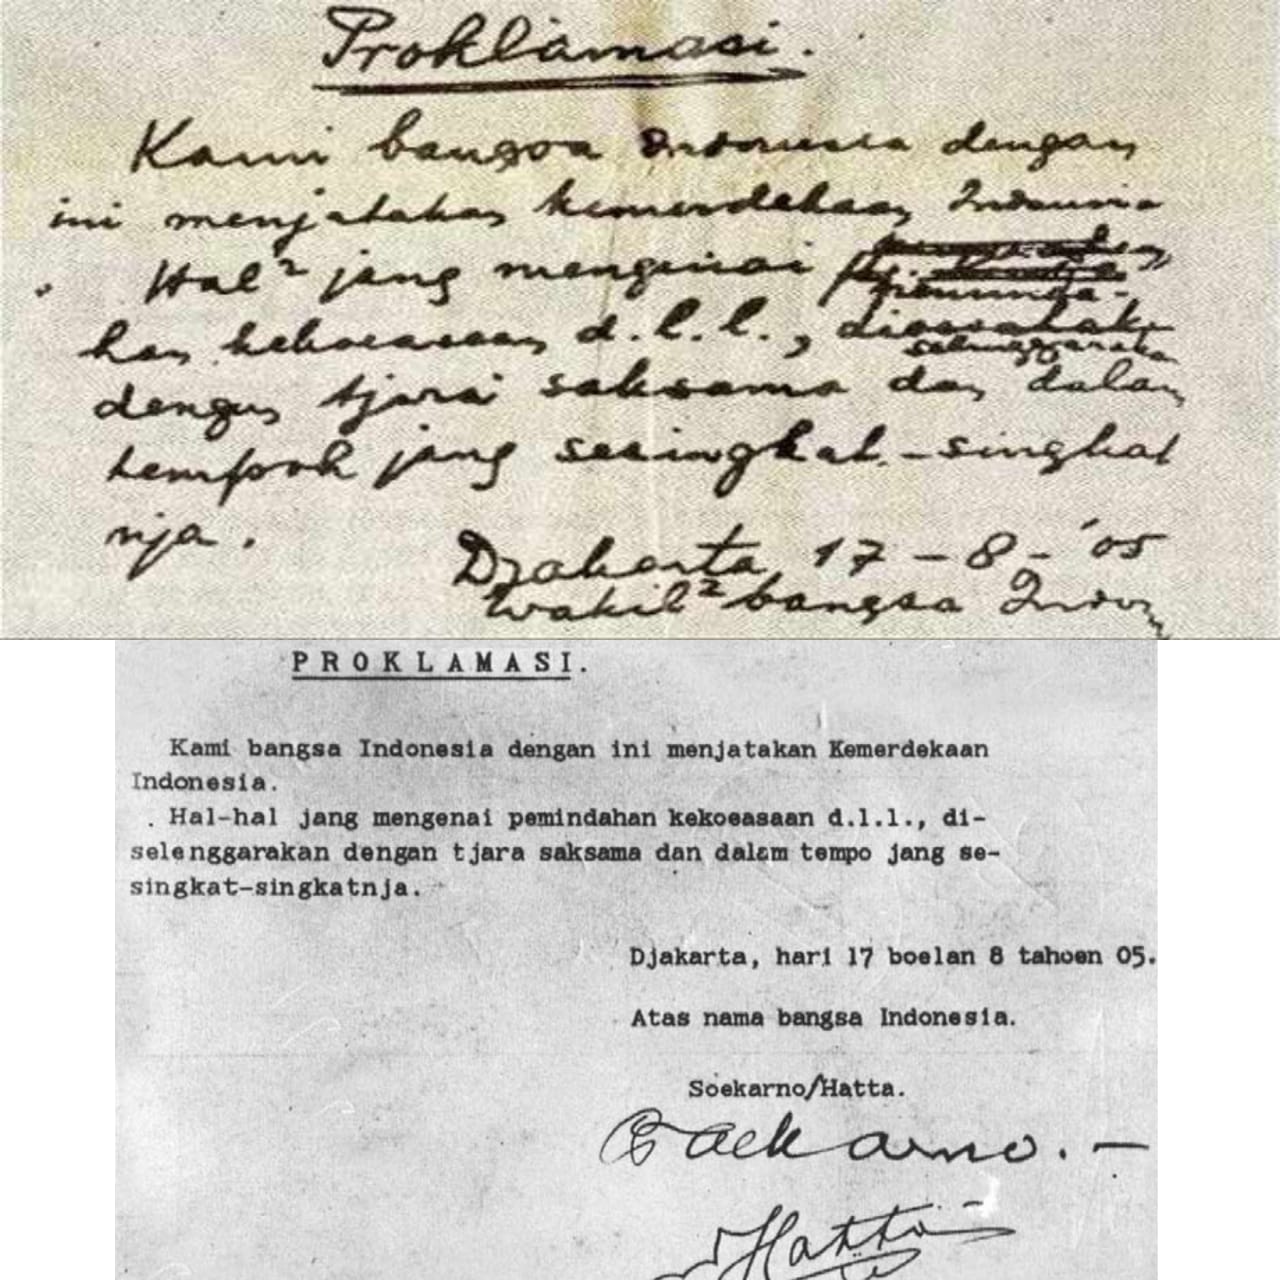 Proklamasi.
Kami bangsa Indonesia dengan
ini menjatakan kemerdekaan Indonesia
Hal² jang mengenai
han kekoeasaan d.l.l.,
selenggarakan
dengan tjara saksama dan dalam
tempoh jang sesingkat-singkat
nja.
Djakarta 17 - 8 - '05
Wakil² bangsa Indon
PROKLAMASI.
Kami bangsa Indonesia dengan ini menjatakan Kemerdekaan
Indonesia.
Hal-hal jang mengenai pemindahan kekoeasaan d.l.l., di-
selenggarakan dengan tjara saksama dan dalam tempo jang se-
singkat-singkatnja.
Djakarta, hari 17 boelan 8 tahoen 05.
Atas nama bangsa Indonesia.
Soekarno/Hatta.
Soekarno.-
Hatta